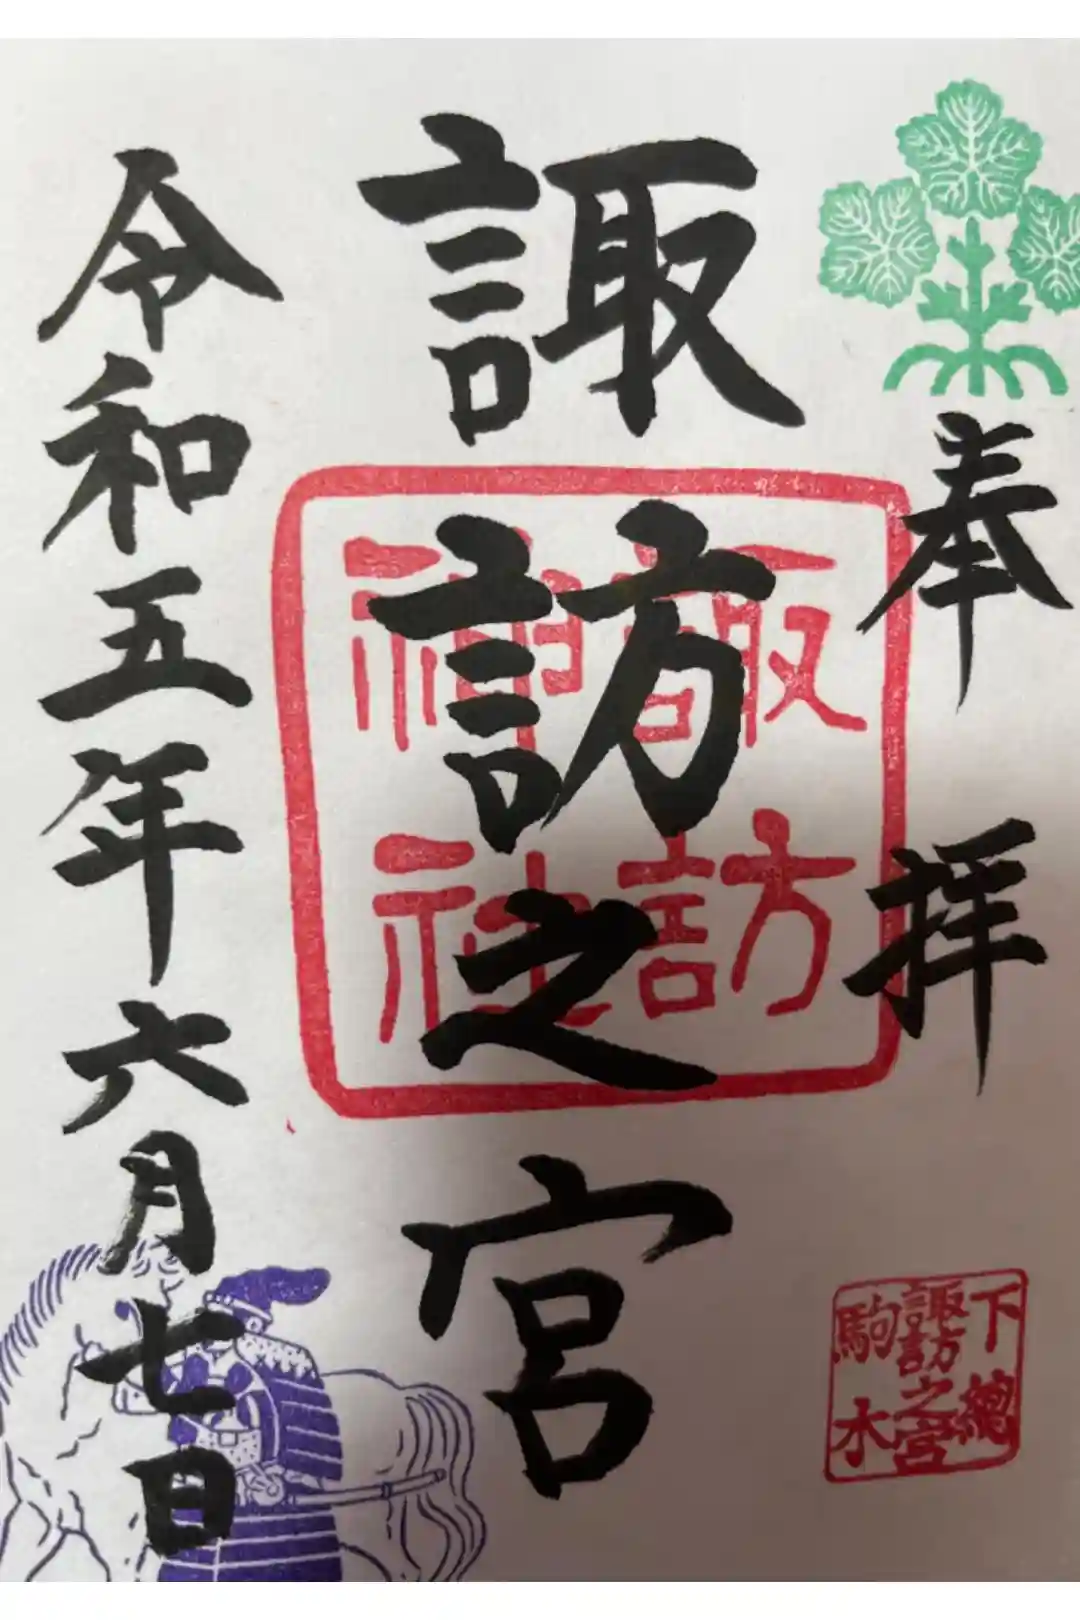 奉拝
諏訪之宮
令和五年六月七日
諏訪
神社
下總
諏訪之宮
駒木